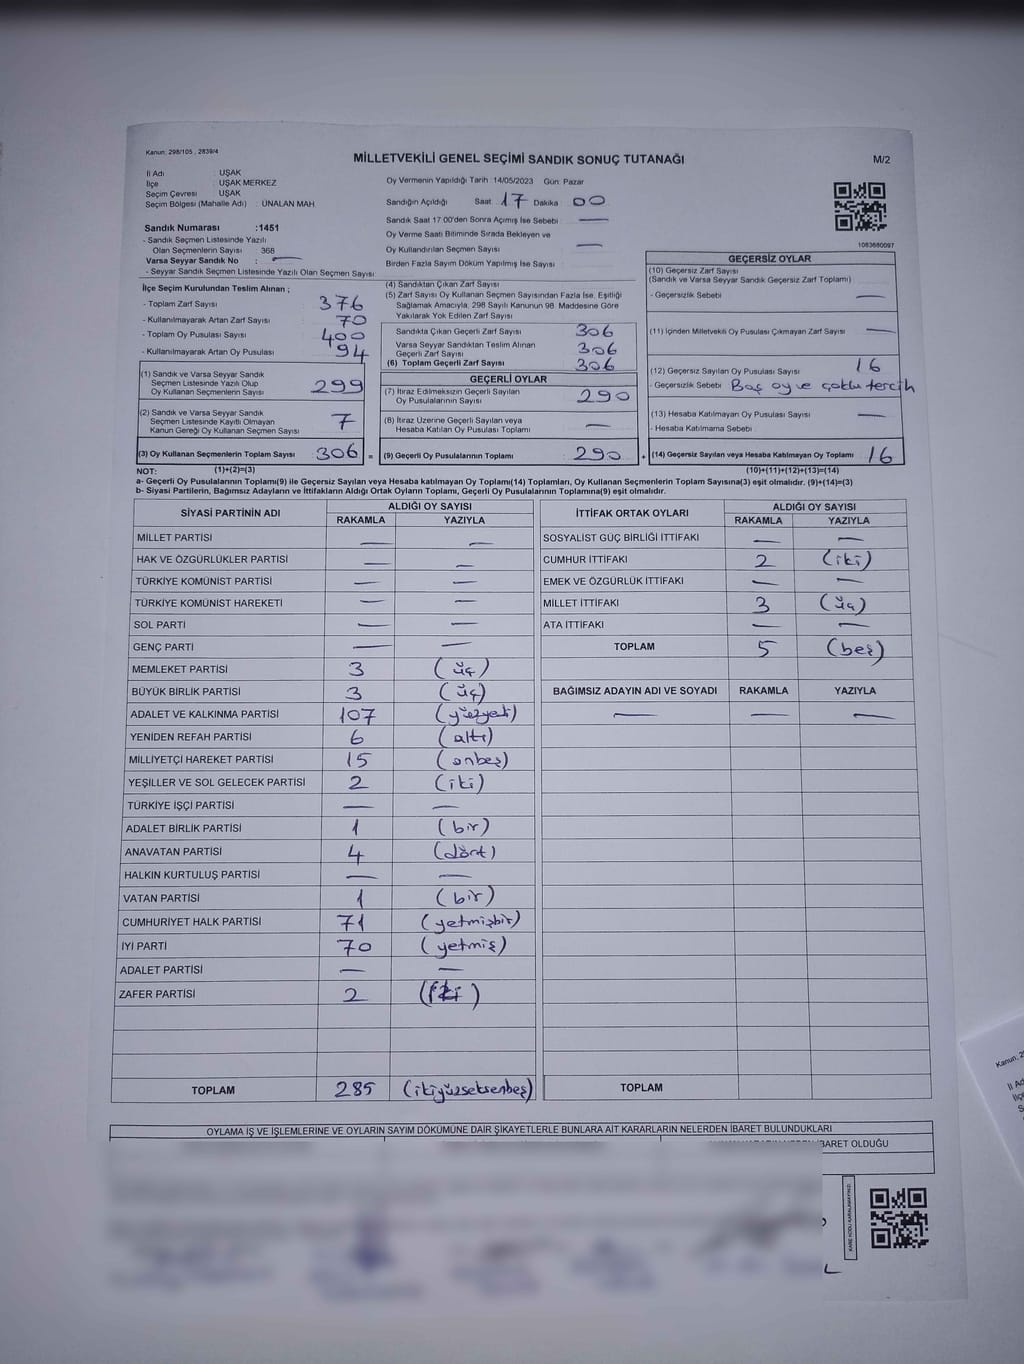 Kanun: 298/105 , 2839/4
MİLLETVEKİLİ GENEL SEÇİMİ SANDIK SONUÇ TUTANAĞI
M/2
İl Adı : UŞAK
İlçe : UŞAK MERKEZ
Seçim Çevresi : UŞAK
Seçim Bölgesi (Mahalle Adı) : ÜNALAN MAH.
Sandık Numarası :1451
- Sandık Seçmen Listesinde Yazılı
Olan Seçmenlerin Sayısı : 368
Varsa Seyyar Sandık No : —
- Seyyar Sandık Seçmen Listesinde Yazılı Olan Seçmen Sayısı :
Oy Vermenin Yapıldığı Tarih :14/05/2023 Gün: Pazar
Sandığın Açıldığı Saat : 17 Dakika : 00
Sandık Saat 17:00'den Sonra Açılmış İse Sebebi : —
Oy Verme Saati Bitiminde Sırada Bekleyen ve
Oy Kullandırılan Seçmen Sayısı : —
Birden Fazla Sayım Döküm Yapılmış İse Sayısı :
1083680097
İlçe Seçim Kurulundan Teslim Alınan ;
- Toplam Zarf Sayısı : 376
- Kullanılmayarak Artan Zarf Sayısı : 70
- Toplam Oy Pusulası Sayısı : 400
- Kullanılmayarak Artan Oy Pusulası : 94
(1) Sandık ve Varsa Seyyar Sandık
Seçmen Listesinde Yazılı Olup
Oy Kullanan Seçmenlerin Sayısı : 299
(2) Sandık ve Varsa Seyyar Sandık
Seçmen Listesinde Kayıtlı Olmayan
Kanun Gereği Oy Kullanan Seçmen Sayısı : 7
(3) Oy Kullanan Seçmenlerin Toplam Sayısı : 306 =
(4) Sandıktan Çıkan Zarf Sayısı :
(5) Zarf Sayısı Oy Kullanan Seçmen Sayısından Fazla İse, Eşitliği
Sağlamak Amacıyla, 298 Sayılı Kanunun 98. Maddesine Göre
Yakılarak Yok Edilen Zarf Sayısı :
Sandıkta Çıkan Geçerli Zarf Sayısı : 306
Varsa Seyyar Sandıktan Teslim Alınan
Geçerli Zarf Sayısı : 306
(6) Toplam Geçerli Zarf Sayısı : 306
GEÇERLİ OYLAR
(7) İtiraz Edilmeksizin Geçerli Sayılan
Oy Pusulalarının Sayısı : 290
(8) İtiraz Üzerine Geçerli Sayılan veya
Hesaba Katılan Oy Pusulası Toplamı : —
(9) Geçerli Oy Pusulalarının Toplamı : 290 +
GEÇERSİZ OYLAR
(10) Geçersiz Zarf Sayısı
(Sandık ve Varsa Seyyar Sandık Geçersiz Zarf Toplamı)
- Geçersizlik Sebebi : —
(11) İçinden Milletvekili Oy Pusulası Çıkmayan Zarf Sayısı : —
(12) Geçersiz Sayılan Oy Pusulası Sayısı : 16
- Geçersizlik Sebebi : Boş oy ve çoklu tercih
(13) Hesaba Katılmayan Oy Pusulası Sayısı : —
- Hesaba Katılmama Sebebi :
(14) Geçersiz Sayılan veya Hesaba Katılmayan Oy Toplamı : 16
NOT: (1)+(2)=(3) (10)+(11)+(12)+(13)=(14)
a- Geçerli Oy Pusulalarının Toplamı(9) ile Geçersiz Sayılan veya Hesaba katılmayan Oy Toplamı(14) Toplamları, Oy Kullanan Seçmenlerin Toplam Sayısına(3) eşit olmalıdır. (9)+(14)=(3)
b- Siyasi Partilerin, Bağımsız Adayların ve İttifakların Aldığı Ortak Oyların Toplamı, Geçerli Oy Pusulalarının Toplamına(9) eşit olmalıdır.
SİYASİ PARTİNİN ADI ALDIĞI OY SAYISI
RAKAMLA YAZIYLA
MİLLET PARTİSİ — —
HAK VE ÖZGÜRLÜKLER PARTİSİ — —
TÜRKİYE KOMÜNİST PARTİSİ — —
TÜRKİYE KOMÜNİST HAREKETİ — —
SOL PARTİ — —
GENÇ PARTİ — —
MEMLEKET PARTİSİ 3 (üç)
BÜYÜK BİRLİK PARTİSİ 3 (üç)
ADALET VE KALKINMA PARTİSİ 107 (yüzyedi)
YENİDEN REFAH PARTİSİ 6 (altı)
MİLLİYETÇİ HAREKET PARTİSİ 15 (onbeş)
YEŞİLLER VE SOL GELECEK PARTİSİ 2 (iki)
TÜRKİYE İŞÇİ PARTİSİ — —
ADALET BİRLİK PARTİSİ 1 (bir)
ANAVATAN PARTİSİ 4 (dört)
HALKIN KURTULUŞ PARTİSİ — —
VATAN PARTİSİ 1 (bir)
CUMHURİYET HALK PARTİSİ 71 (yetmişbir)
İYİ PARTİ 70 (yetmiş)
ADALET PARTİSİ — —
ZAFER PARTİSİ 2 (iki)
TOPLAM 285 (ikiyüzseksenbeş)
İTTİFAK ORTAK OYLARI ALDIĞI OY SAYISI
RAKAMLA YAZIYLA
SOSYALİST GÜÇ BİRLİĞİ İTTİFAKI — —
CUMHUR İTTİFAKI 2 (iki)
EMEK VE ÖZGÜRLÜK İTTİFAKI — —
MİLLET İTTİFAKI 3 (üç)
ATA İTTİFAKI — —
TOPLAM 5 (beş)
BAĞIMSIZ ADAYIN ADI VE SOYADI RAKAMLA YAZIYLA
— — —
TOPLAM
OYLAMA İŞ VE İŞLEMLERİNE VE OYLARIN SAYIM DÖKÜMÜNE DAİR ŞİKAYETLERLE BUNLARA AİT KARARLARIN NELERDEN İBARET BULUNDUKLARI
İBARET OLDUĞU
KARE KODU KARALAMAYINIZ!
Kanun: 29
İl Ad
İlçe